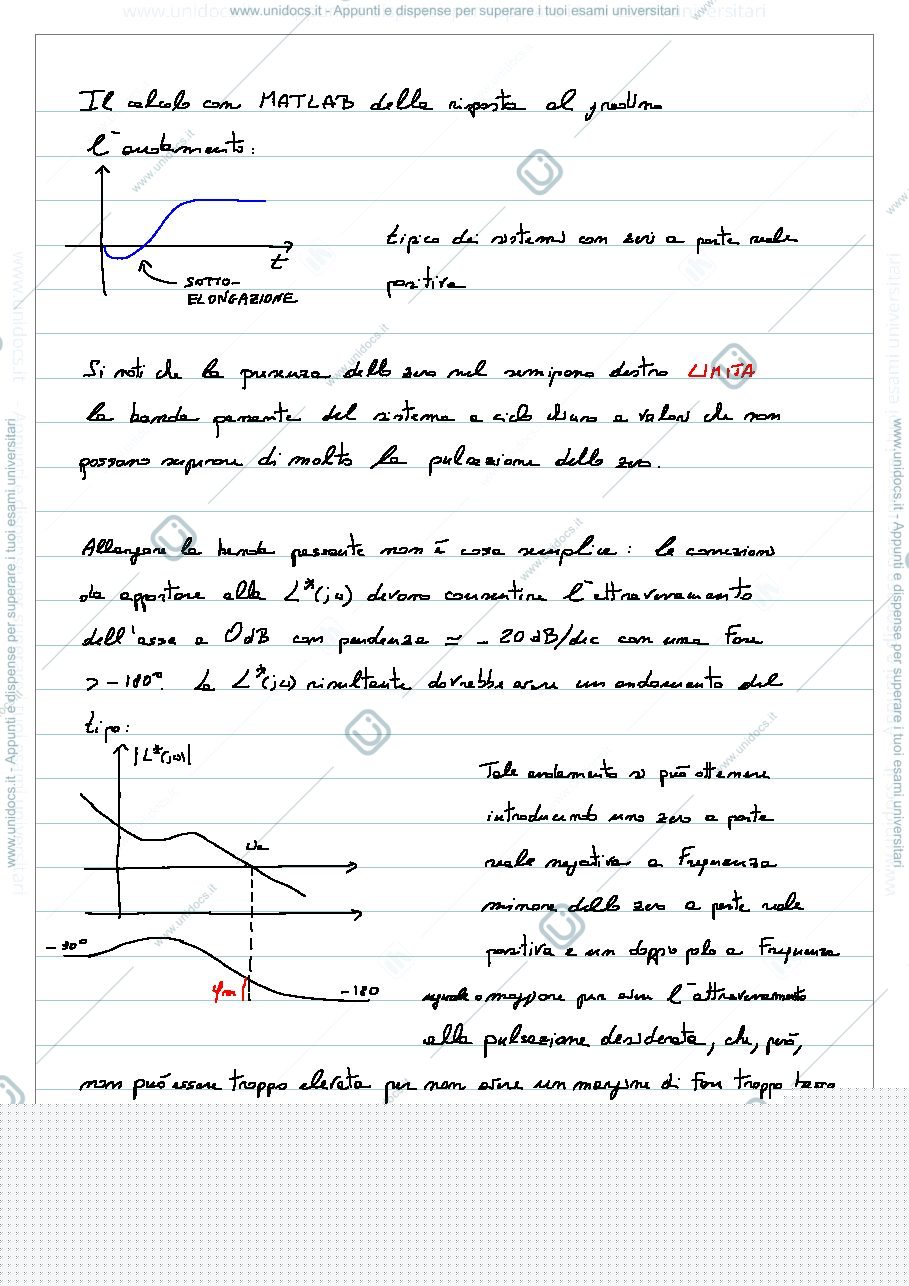 www.unidocs.it - Appunti e dispense per superare i tuoi esami universitari
Il calcolo con MATLAB della risposta al gradino
l'andamento:
t
SOTTO-
ELONGAZIONE
tipico dei sistemi con zeri a parte reale
positiva
Si noti che la presenza dello zero nel semipiano destro LIMITA
la banda passante del sistema a ciclo chiuso a valori che non
possano superare di molto la pulsazione dello zero.
Allargare la banda passante non è cosa semplice: le correzioni
da apportare alla L*(jω) devono consentire l'attraversamento
dell'asse a 0dB con pendenza ≃ -20dB/dec con una fase
> -180°. La L*(jω) risultante dovrebbe avere un andamento del
tipo:
|L*(jω)|
ωc
-90°
φm
-180
Tale andamento si può ottenere
introducendo uno zero a parte
reale negativa a frequenza
minore dello zero a parte reale
positiva e un doppio polo a frequenza
uguale o maggiore per aver l'attraversamento
alla pulsazione desiderata, che, però,
non può essere troppo elevata per non avere un margine di fase troppo basso
www.unidocs.it - Appunti e dispense per superare i tuoi esami universitari
www.unidocs.it - Appunti e dispense per superare i tuoi esami universitari